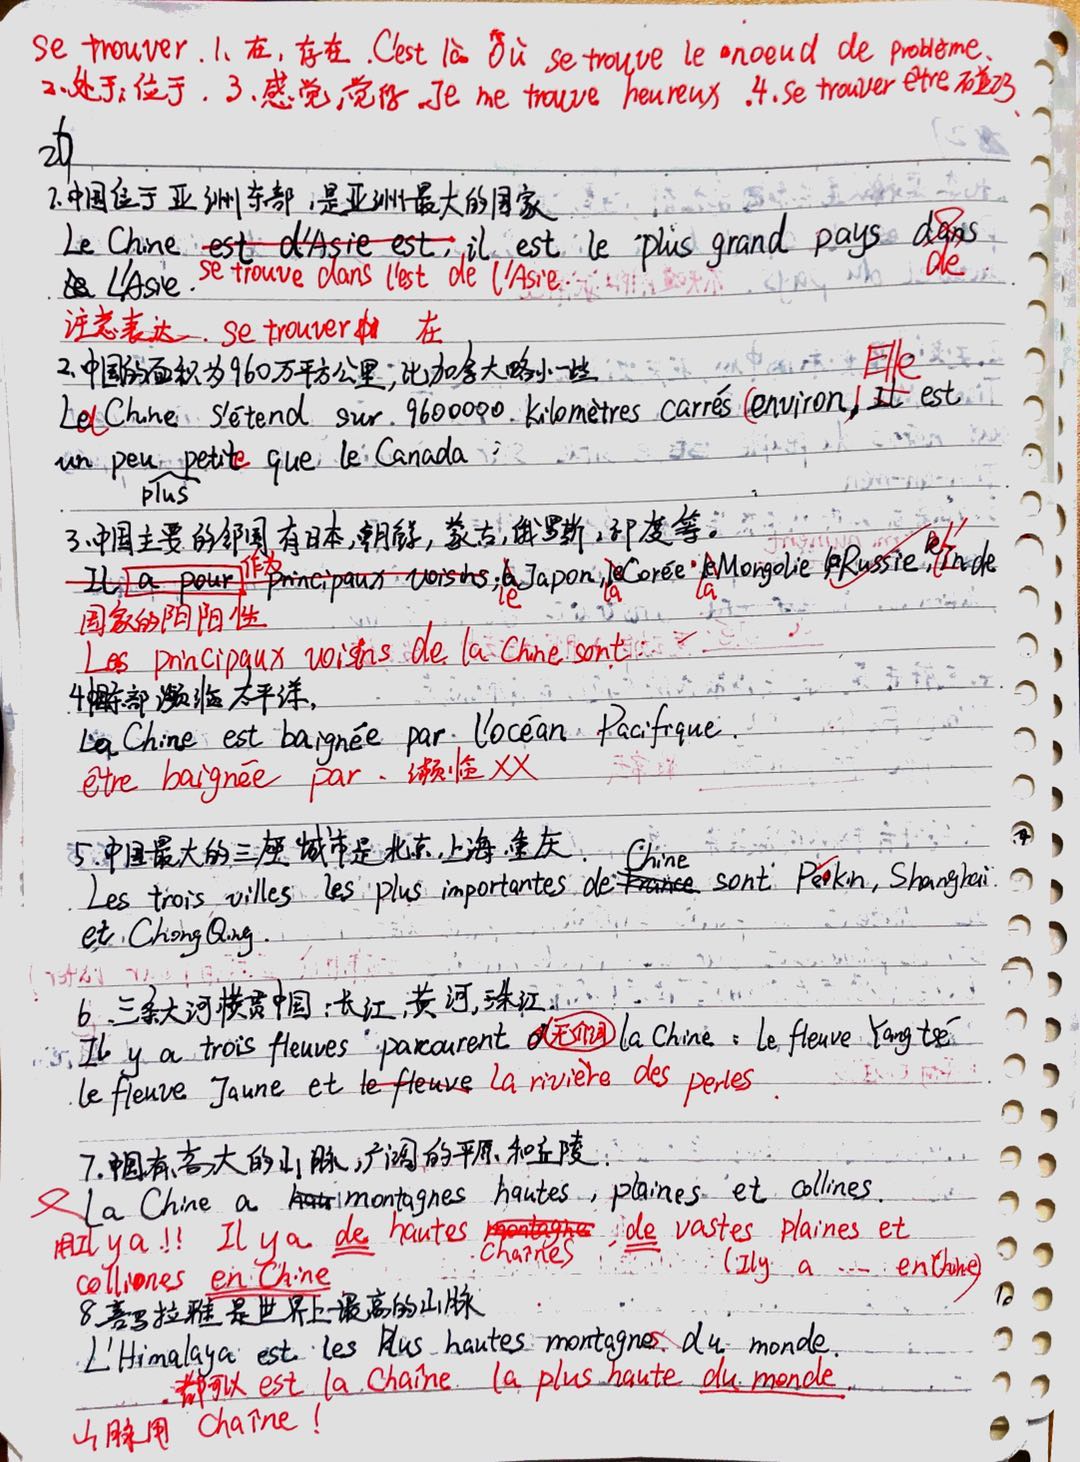 se trouver. 1. 在, 存在. C'est là Où se trouve le noeud de problème.
2. 处于; 位于. 3. 感觉, 觉得. Je me trouve heureux. 4. se trouver être 碰巧
1. 中国位于亚洲东部, 是亚洲最大的国家
Le Chine est d'Asie est, il est le plus grand pays dans
de
L'Asie. se trouve dans l'est de L'Asie.
注意表达. se trouver 在
2. 中国的面积为960万平方公里, 比加拿大略小一些
Elle
La Chine s'étend sur 9600000 kilomètres carrés (environ), Il est
un peu petite que le Canada
plus
3. 中国主要的邻国有日本, 朝鲜, 蒙古, 俄罗斯, 印度等。
Il a pour 作为 principaux voisins: le Japon, la Corée, la Mongolie, la Russie, l'Inde
国家的阴阳性
Les principaux voisins de la Chine sont
4. 中国东部濒临太平洋.
La Chine est baignée par l'océan Pacifique.
être baignée par. 濒临XX
5. 中国最大的三座城市是北京, 上海, 重庆.
Chine
Les trois villes les plus importantes de France sont Pékin, Shanghai
et ChongQing.
6. 三条大河横贯中国: 长江, 黄河, 珠江.
Il y a trois fleuves parcourent 无介词 la Chine: le fleuve Yangtsé
le fleuve Jaune et le fleuve La rivière des perles.
7. 中国有高大的山脉, 广阔的平原和丘陵.
La Chine a montagnes hautes, plaines et collines.
用Il y a!! Il y a de hautes montagne, de vastes plaines et
chaînes (Il y a ... en Chine)
colliones en Chine
8. 喜马拉雅是世界上最高的山脉
L'Himalaya est les plus hautes montagnes du monde.
都可以 est la Chaîne la plus haute du monde.
山脉用 Chaîne!